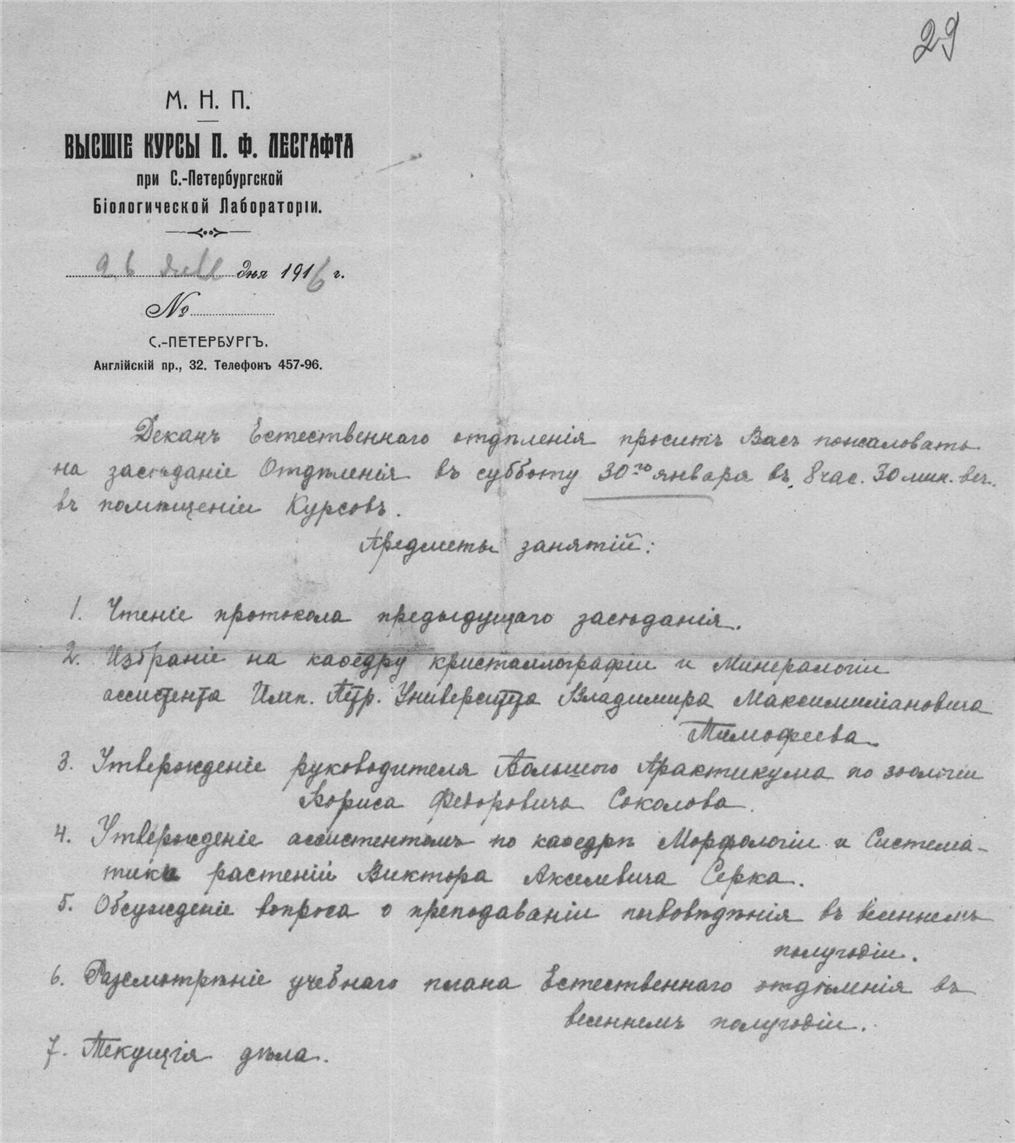 29
М. Н. П.
ВЫСШІЕ КУРСЫ П. Ф. ЛЕСГАФТА
при С.-Петербургской
Біологической Лабораторіи.
26 дня 1916 г.
№
С.-ПЕТЕРБУРГЪ.
Англійскій пр., 32. Телефонъ 457-96.
Деканъ Естественнаго отдѣленія проситъ Васъ пожаловать
на засѣданіе Отдѣленія въ субботу 30го января въ 8 час. 30 мин. веч.
въ помѣщеніи Курсовъ.
Предметы занятій:
1. Чтеніе протокола предыдущаго засѣданія.
2. Избраніе на кафедру кристаллографіи и Минералогіи
ассистента Имп. Петр. Университета Владимира Максимиліановича
Тимофеева
3. Утвержденіе руководителя Большого Практикума по зоологіи
Бориса Федоровича Соколова.
4. Утвержденіе ассистентомъ по кафедрѣ Морфологіи и Система-
тики растеній Виктора Акселевича Серка.
5. Обсужденіе вопроса о преподаваніи почвовѣдѣнія въ весеннемъ
полугодіи.
6. Разсмотрѣніе учебнаго плана Естественнаго отдѣленія въ
весеннемъ полугодіи.
7. Текущія дѣла.